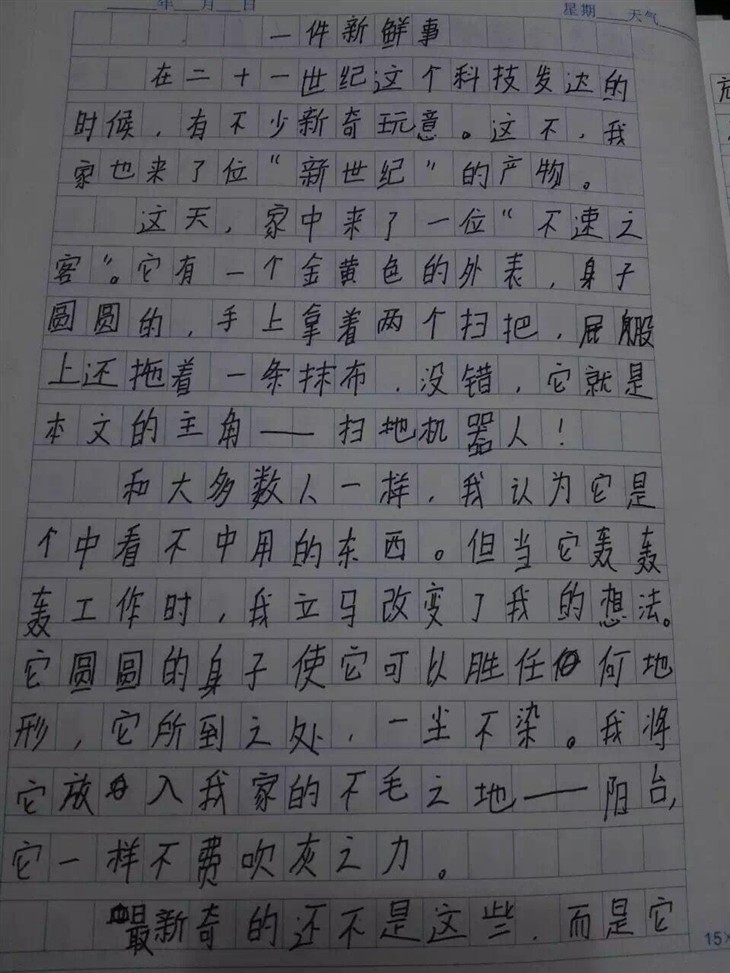 年 月 日 星期 天气
一件新鲜事
在二十一世纪这个科技发达的
时候，有不少新奇玩意。这不，我
家也来了位“新世纪”的产物。
这天，家中来了一位“不速之
客”。它有一个金黄色的外表，身子
圆圆的，手上拿着两个扫把，屁股
上还拖着一条抹布，没错，它就是
本文的主角——扫地机器人！
和大多数人一样，我认为它是
个中看不中用的东西。但当它轰轰
轰工作时，我立马改变了我的想法。
它圆圆的身子使它可以胜任何地
形，它所到之处，一尘不染。我将
它放入我家的不毛之地——阳台，
它一样不费吹灰之力。
最新奇的还不是这些，而是它
15×